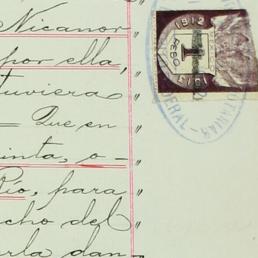 Nicanor
por ella,
tuviera
= Que en
inta, o-
Río, para
cho del
arla dan-
1912
1
PESO
1913